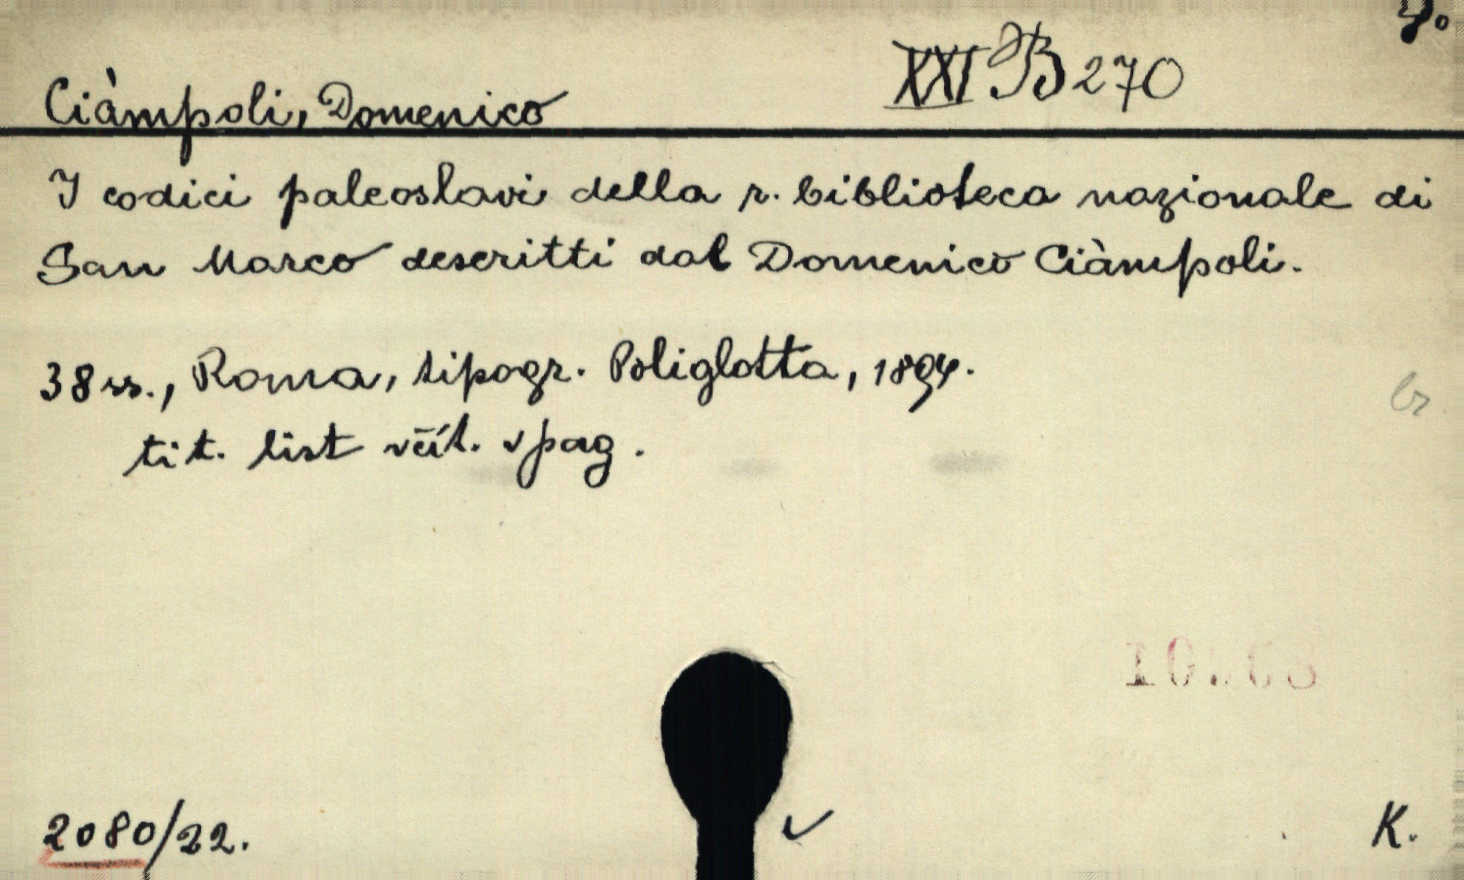 8°
XXI B 270
Ciàmpoli, Domenico
I codici paleoslavi della r. biblioteca nazionale di
San Marco descritti dal Domenico Ciàmpoli.
38 ss., Roma, tipogr. Poliglotta, 1894.
br
tit. list včít. v pag.
2080/22.
K.